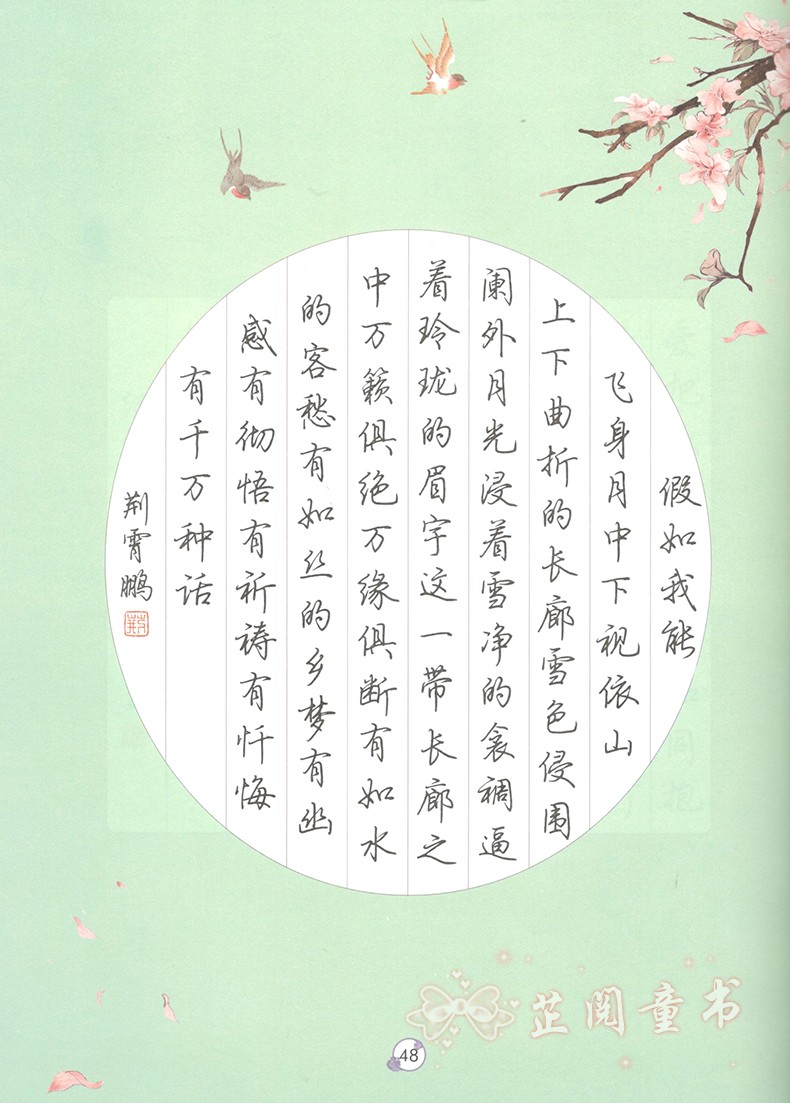 假如我能
飞身月中下视依山
上下曲折的长廊雪色侵围
阑外月光浸着雪净的衾裯逼
着玲珑的眉宇这一带长廊之
中万籁俱绝万缘俱断有如水
的客愁有如丝的乡梦有幽
感有彻悟有祈祷有忏悔
有千万种话
荆霄鹏
荆
芷阅童书
48